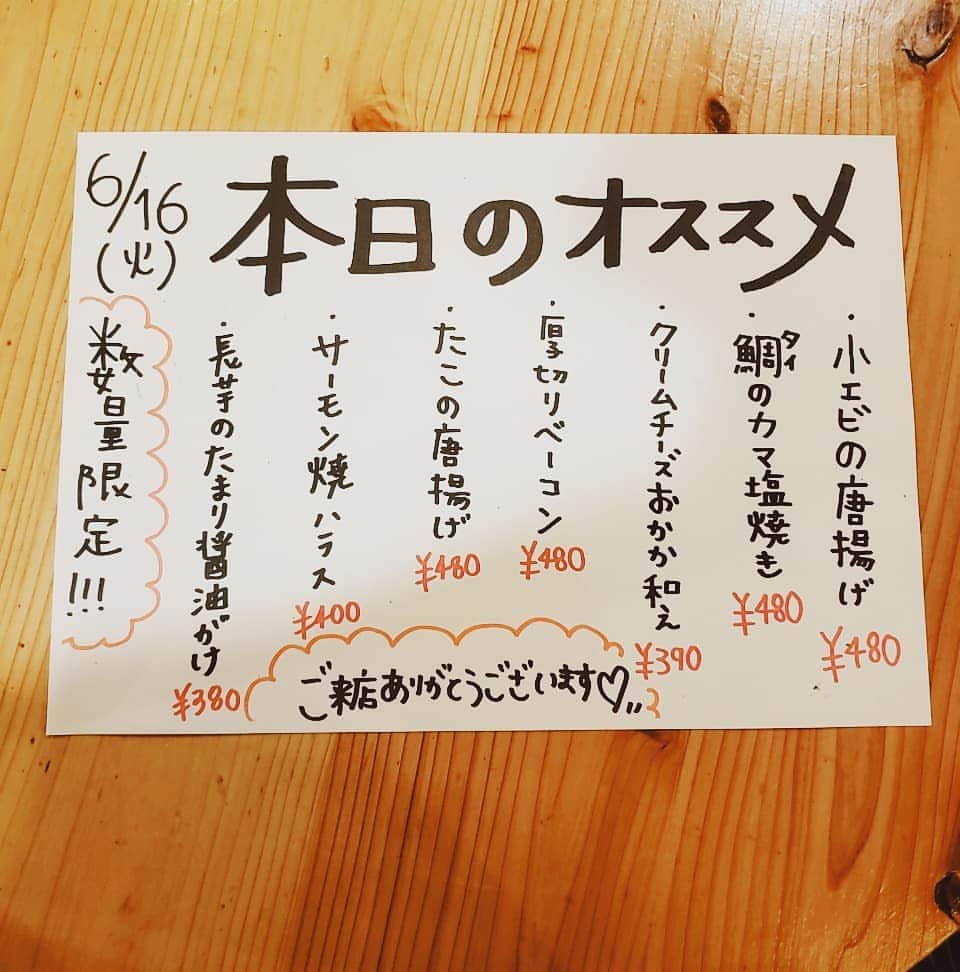 6/16
(火)
本日のオススメ
・小エビの唐揚げ
¥480
・鯛のカマ塩焼き
タイ
¥480
・クリームチーズおかか和え
¥390
・厚切りベーコン
¥480
・たこの唐揚げ
¥480
・サーモン焼ハラス
¥400
・長芋のたまり醤油がけ
¥380
数量限定!!!
ご来店ありがとうございます♡〃